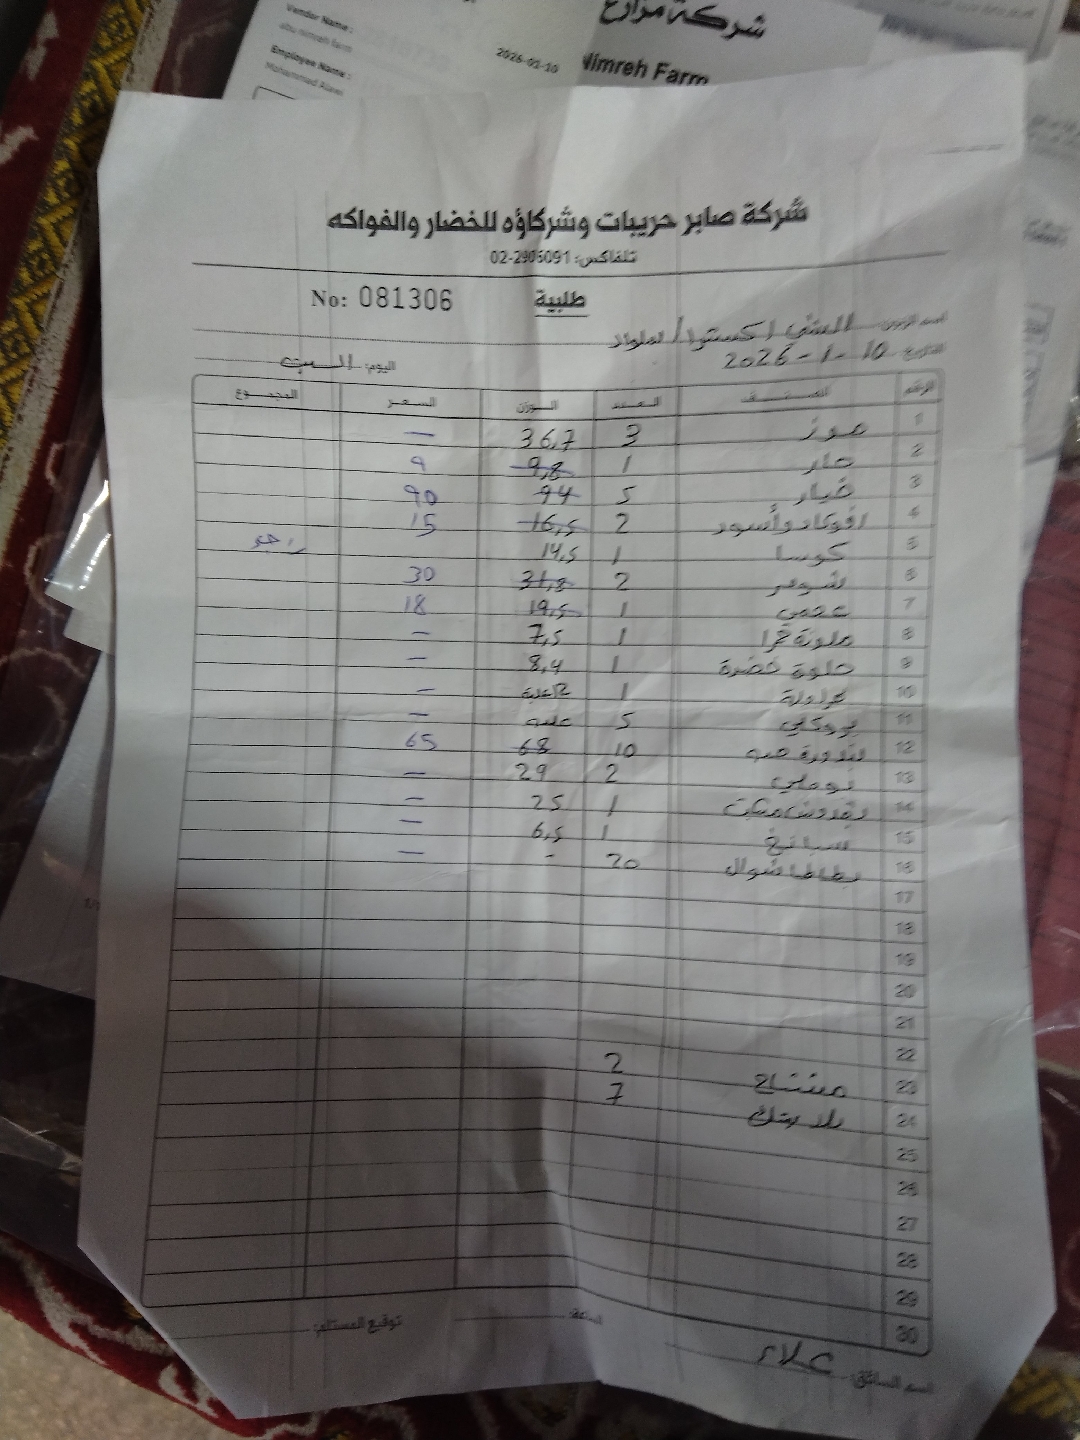 Vendor Name :
abu nimreh farm
Employee Name :
2026-01-10
شركة مزارع
Nimreh Farm
شركة صابر حريبات وشركاؤه للخضار والفواكه
تلفاكس: 02-2906091
No: 081306 طلبية
اسم الزبون:
التاريخ: 10-1-2026 اليوم: السبت
الرقم الصنف العدد الوزن السعر المجموع
1 موز 3 36,7 —
2 حار 1 9,8 9
3 خيار 5 94 90
4 افوكادو أسود 2 16,5 15
5 كوسا 1 14,5 راجع
6 شومر 2 31,8 30
7 عجمي 1 19,5 18
8 ملونة حمرا 1 7,5 —
9 حلوة خضرة 1 8,4 —
10 1 —
11 بروكلي 5 علبه —
12 بندورة حبه 10 68 65
13 بوملي 2 29 —
14 بقدونس 1 25 —
15 سبانخ 1 6,5 —
16 بطاطا شوال 20 - —
17
18
19
20
21
22
23 مشتاح 2
24 بلاستك 7
25
26
27
28
29
30
الساعة: توقيع المستلم:
اسم السائق: علاء